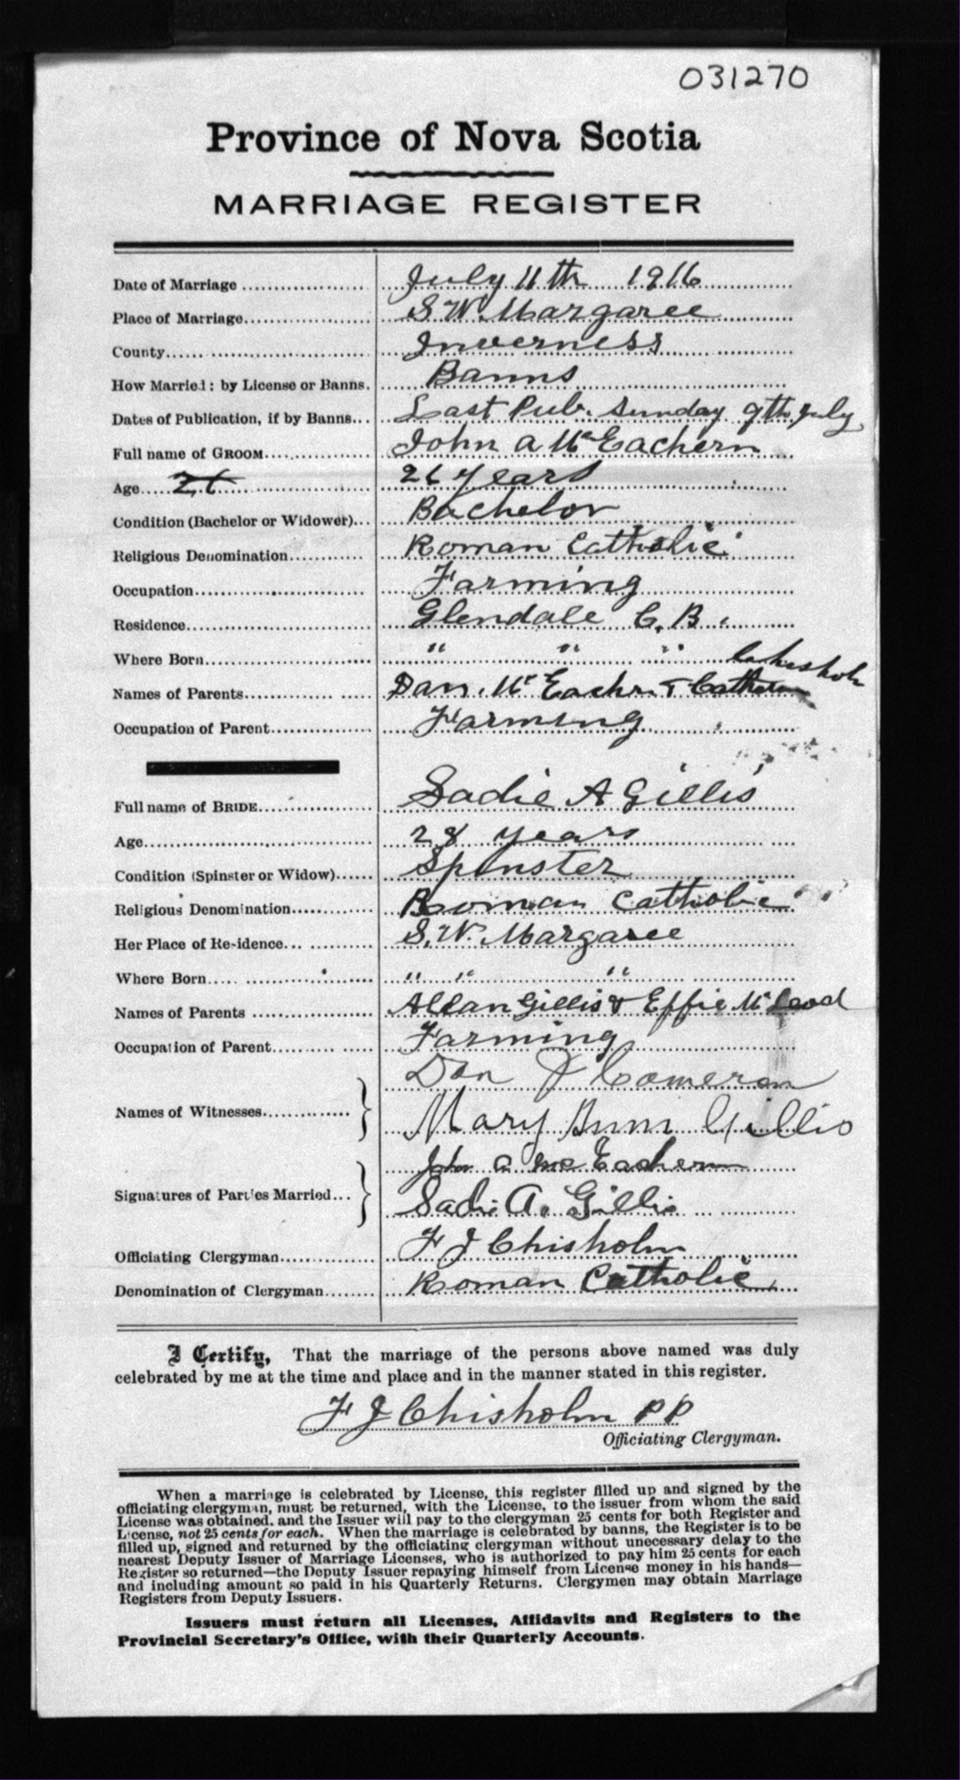 031270
Province of Nova Scotia
MARRIAGE REGISTER
Date of Marriage July 11th 1916
Place of Marriage S. W. Margaree
County Inverness
How Married: by License or Banns. Banns
Dates of Publication, if by Banns Last Pub. Sunday 9th July
Full name of GROOM John A McEachern
Age 26 26 years
Condition (Bachelor or Widower) Bachelor
Religious Denomination Roman Catholic
Occupation Farming
Residence Glendale C. B.
Where Born " " "
Names of Parents Dan. McEachrn & Catherin Chisholm
Occupation of Parent Farming
Full name of BRIDE Sadie A Gillis
Age 28 years
Condition (Spinster or Widow) Spinster
Religious Denomination Roman Catholic
Her Place of Residence S. W. Margaree
Where Born " " "
Names of Parents Allan Gillis & Effie McLeod
Occupation of Parent Farming
Names of Witnesses Dan J Cameron
Mary Ann Gillis
Signatures of Parties Married John A McEachern
Sadie A. Gillis
Officiating Clergyman F J Chisholm
Denomination of Clergyman Roman Catholic
I Certify, That the marriage of the persons above named was duly
celebrated by me at the time and place and in the manner stated in this register.
F J Chisholm PP
Officiating Clergyman.
When a marriage is celebrated by License, this register filled up and signed by the
officiating clergyman, must be returned, with the License, to the issuer from whom the said
License was obtained, and the Issuer will pay to the clergyman 25 cents for both Register and
License, not 25 cents for each. When the marriage is celebrated by banns, the Register is to be
filled up, signed and returned by the officiating clergyman without unecessary delay to the
nearest Deputy Issuer of Marriage Licenses, who is authorized to pay him 25 cents for each
Register so returned—the Deputy Issuer repaying himself from License money in his hands—
and including amount so paid in his Quarterly Returns. Clergymen may obtain Marriage
Registers from Deputy Issuers.
Issuers must return all Licenses, Affidavits and Registers to the
Provincial Secretary's Office, with their Quarterly Accounts.